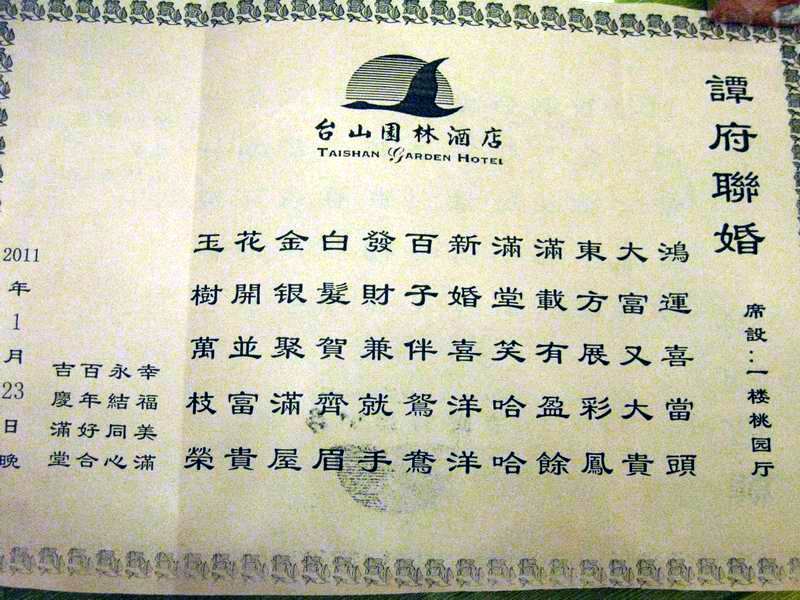 台山園林酒店
TAISHAN GARDEN HOTEL
譚府聯婚
席設：一楼桃园厅
鴻運喜當頭
大富又大貴
東方展彩鳳
滿載有盈餘
滿堂笑哈哈
新婚喜洋洋
百子伴鴛鴦
發財兼就手
白髮賀齊眉
金银聚滿屋
花開並富貴
玉樹萬枝榮
幸福美滿
永結同心
百年好合
吉慶滿堂
2011年1月23日晚